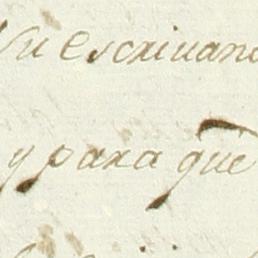 Su escrivano
y para que